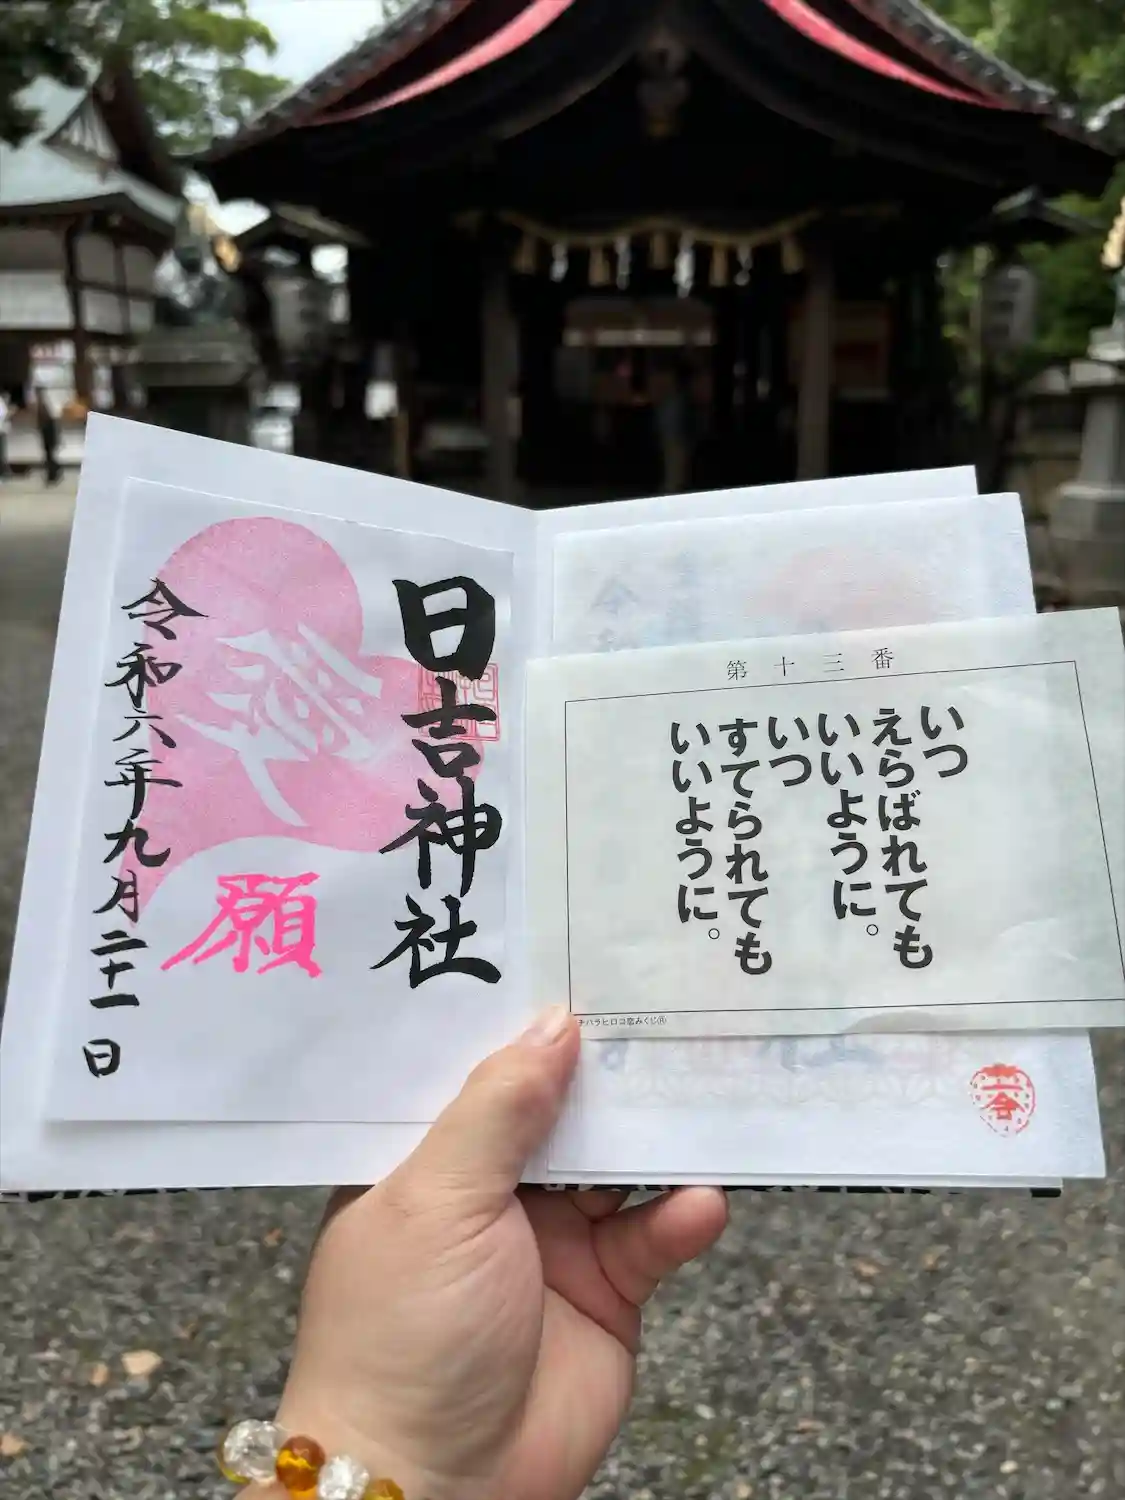 日吉神社
願
令和六年九月二十一日
第十三番
いつ
えらばれても
いいように。
いつ
すてられても
いいように。
チハラヒロコ恋みくじ